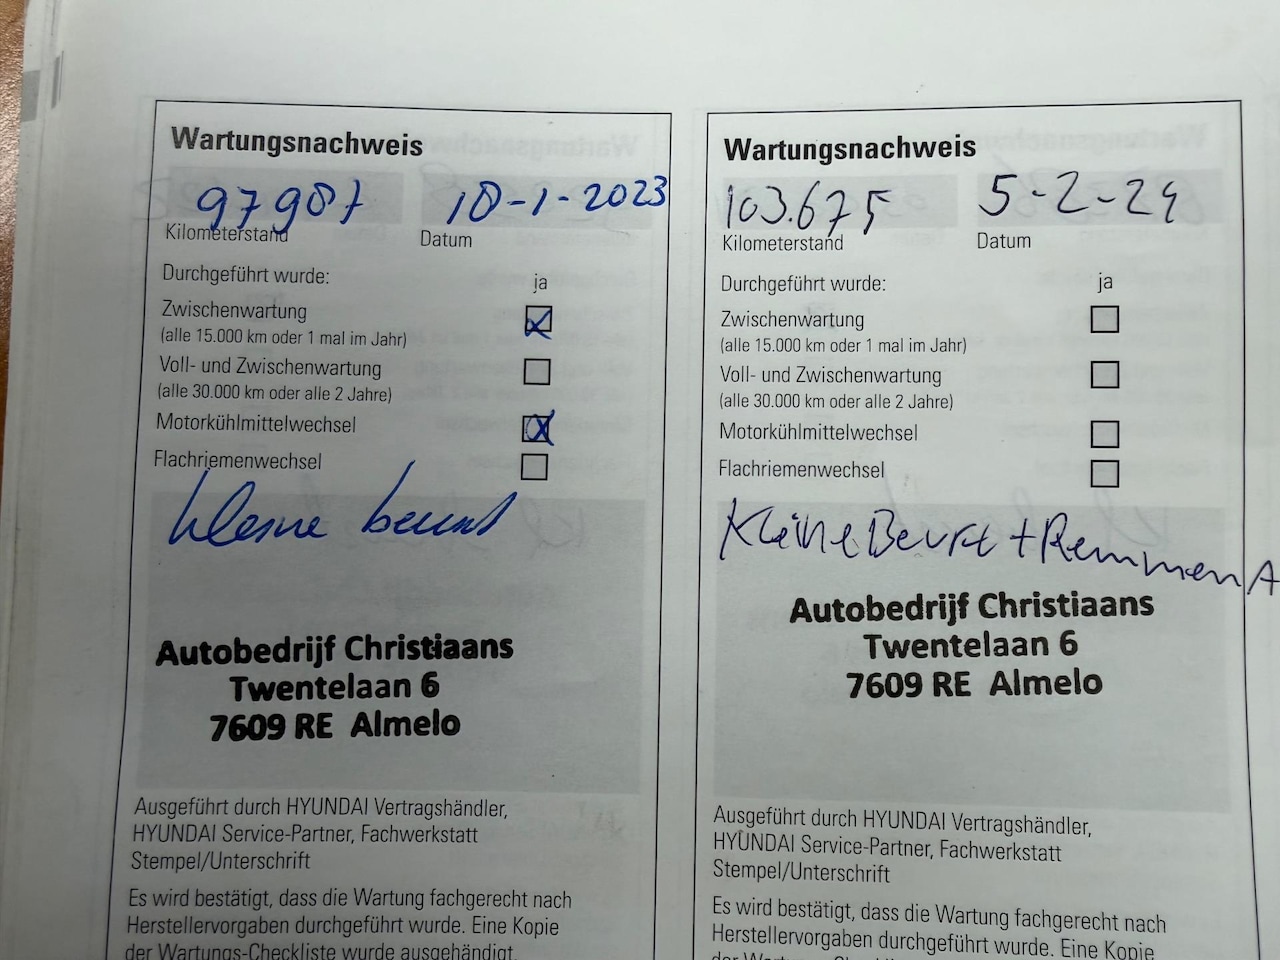 Wartungsnachweis
97987 18-1-2023
Kilometerstand Datum
Durchgeführt wurde: ja
Zwischenwartung
(alle 15.000 km oder 1 mal im Jahr)
Voll- und Zwischenwartung
(alle 30.000 km oder alle 2 Jahre)
Motorkühlmittelwechsel
Flachriemenwechsel
kleine beurt
Autobedrijf Christiaans
Twentelaan 6
7609 RE Almelo
Ausgeführt durch HYUNDAI Vertragshändler,
HYUNDAI Service-Partner, Fachwerkstatt
Stempel/Unterschrift
Es wird bestätigt, dass die Wartung fachgerecht nach
Herstellervorgaben durchgeführt wurde. Eine Kopie
der Wartungs-Checkliste wurde ausgehändigt.
Wartungsnachweis
103.675 5-2-24
Kilometerstand Datum
Durchgeführt wurde: ja
Zwischenwartung
(alle 15.000 km oder 1 mal im Jahr)
Voll- und Zwischenwartung
(alle 30.000 km oder alle 2 Jahre)
Motorkühlmittelwechsel
Flachriemenwechsel
Kleine Beurt + Remmen A
Autobedrijf Christiaans
Twentelaan 6
7609 RE Almelo
Ausgeführt durch HYUNDAI Vertragshändler,
HYUNDAI Service-Partner, Fachwerkstatt
Stempel/Unterschrift
Es wird bestätigt, dass die Wartung fachgerecht nach
Herstellervorgaben durchgeführt wurde. Eine Kopie